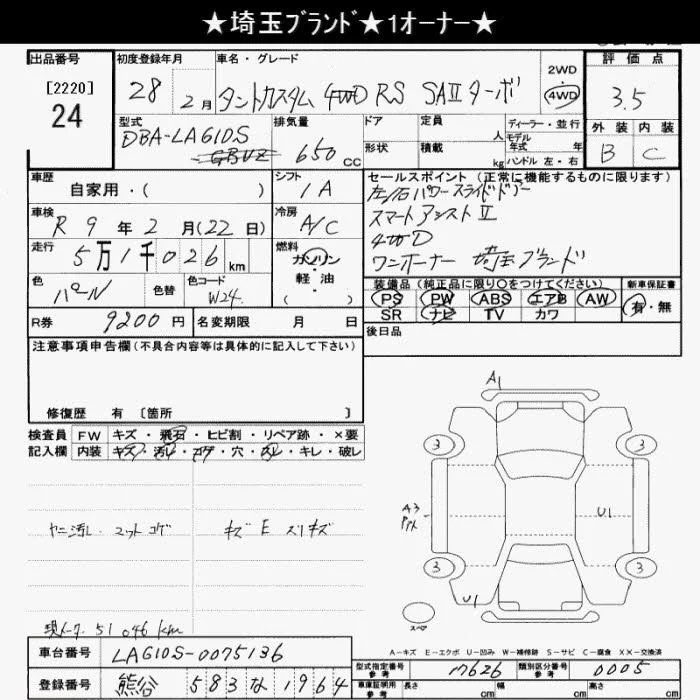 ★埼玉ﾌﾞﾗﾝﾄﾞ★1オーナー★
出品番号 初度登録年月 車名・グレード 2WD 評価点
[2220] 28 2月 タントカスタム 4WD RS SAⅡターボ 4WD 3.5
24
型式 排気量 ドア 定員 人 ディーラー・並行 外装 内装
DBA-LA610S 650cc 形状 積載 kg モデル年式 年 B C
ハンドル 左・右
車歴 自家用・( ) シフト IA セールスポイント(正常に機能するものに限ります)
左/右パワースライドドアー
車検 R9年2月(22日) 冷房 A/C スマートアシストⅡ
4WD
走行 5万1千026km 燃料 ガソリン・軽油( ) ワンオーナー 埼玉ブランド
色 パール 色替 色コード W24 装備品(純正品に限り○をつけてください) 新車保証書
PS PW ABS エアB AW 有・無
SR ナビ TV カワ
R券 9200円 名変期限 月 日 後日品
注意事項申告欄(不具合内容等は具体的に記入して下さい)
修復歴 有 [箇所 ]
検査員 FW キズ・飛石・ヒビ割・リペア跡・×要
記入欄 内装 キズ・汚れ・コゲ・穴・スレ・キレ・破レ
ヤニ汚レ・マットコゲ キズ E スリキズ
51046km
A1
3 3
A3 U1
3 3
U1
スペア
A-キズ E-エクボ U-凹み W-補修跡 S-サビ C-腐食 XX-交換済
車台番号 LA610S-0075136
登録番号 熊谷 583な1964
型式指定番号 参考 17626 類別区分番号 参考 0005
車庫証明用 参考 長さ cm 幅 cm 高さ cm